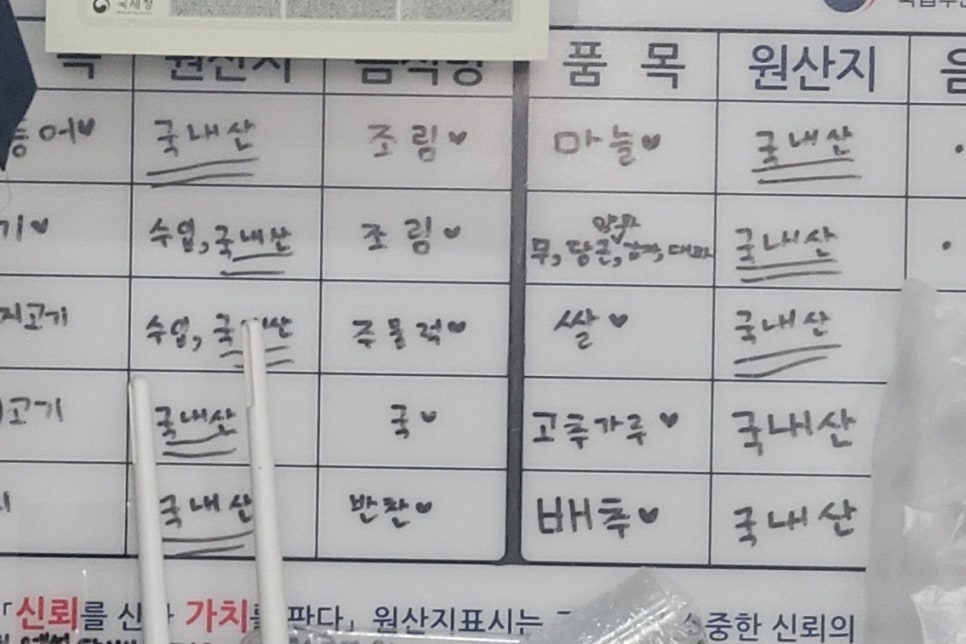 국세청
목 원산지 음식명 품 목 원산지 음
등어♥ 국내산 조림♥ 마늘♥ 국내산
기♥ 수입, 국내산 조림♥ 양파 무, 당근, 감자, 대파 국내산
지고기 수입, 국내산 주물럭♥ 쌀♥ 국내산
고기 국내산 국♥ 고추가루♥ 국내산
국내산 반찬♥ 배추♥ 국내산
「신뢰를 가치를 판다」 원산지표시는 소중한 신뢰의